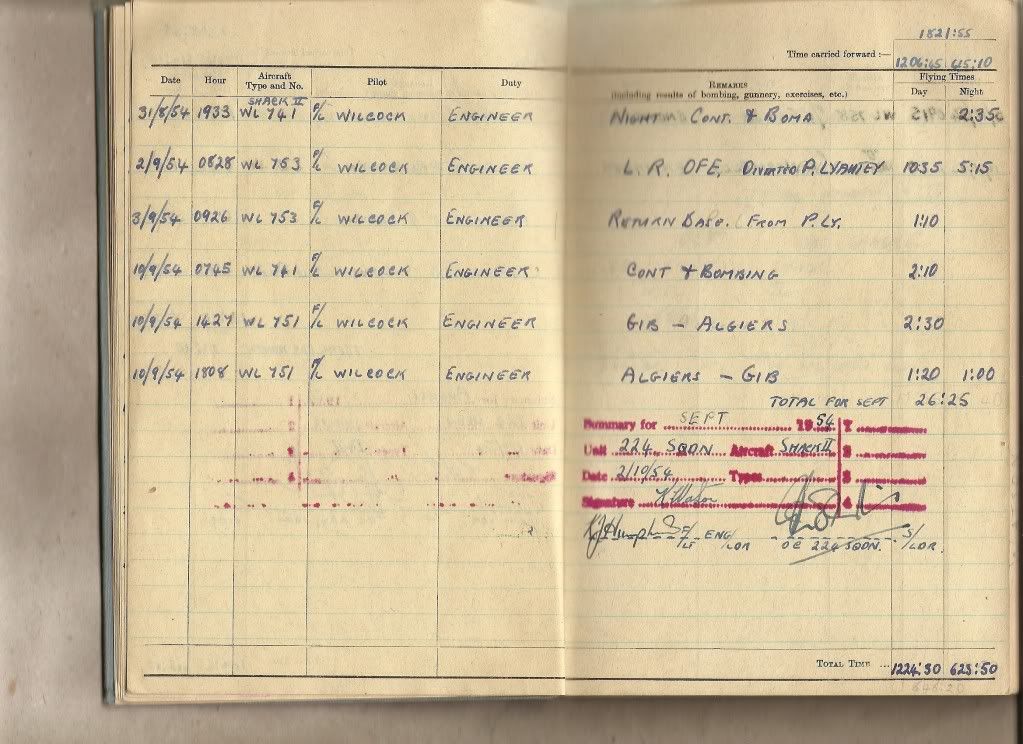 1821:55
Time carried forward :—
1206:45 615:10
Date Hour Aircraft Type and No. Pilot Duty REMARKS (including results of bombing, gunnery, exercises, etc.) Flying Times Day Night
SHACK II
31/8/54 1933 WL 741 F/L WILCOCK ENGINEER NIGHT CONT. & BOMB 2:35
2/9/54 0828 WL 753 F/L WILCOCK ENGINEER L.R. OFE, DIVERTED P. LYAUTEY 10:35 5:15
3/9/54 0926 WL 753 F/L WILCOCK ENGINEER RETURN BASE. FROM P. LY. 1:10
10/9/54 0745 WL 741 F/L WILCOCK ENGINEER CONT & BOMBING 2:10
10/9/54 1427 WL 751 F/L WILCOCK ENGINEER GIB — ALGIERS 2:30
10/9/54 1808 WL 751 F/L WILCOCK ENGINEER ALGIERS — GIB 1:20 1:00
TOTAL FOR SEPT 26:25
Summary for SEPT 1954 1
Unit 224 SQDN. Aircraft SHACK II 2
Date 2/10/54 Types 3
Signature 4
F/LT ENG/LDR OC 224 SQDN. S/LDR.
TOTAL TIME ... 1224:30 623:50